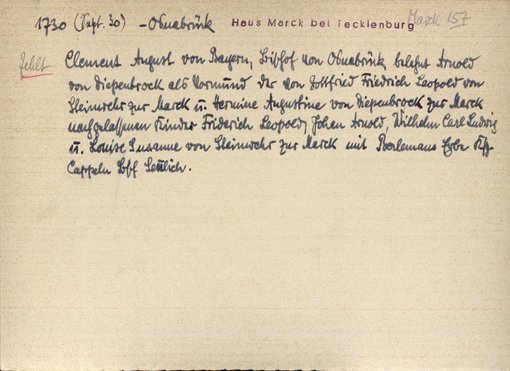 1730 (Sept. 30) - Osnabrück Haus Marck bei Tecklenburg Marck 157
fehlt Clement August von Bayern, Bischof von Osnabrück belehnt Arnold
von Diepenbrock als Vormund der von Gottfried Friedrich Leopold von
Steinwehr zur Marck u. Hermine Augustine von Diepenbrock zur Marck
nachgelassenen Kinder Friderich Leopold, Johan Arnold, Wilhelm Carl Ludwig
u. Louise Susanne von Steinwehr zur Marck mit Erbe
Cappeln